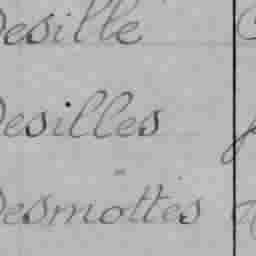 Desille
Desilles
Desmottes